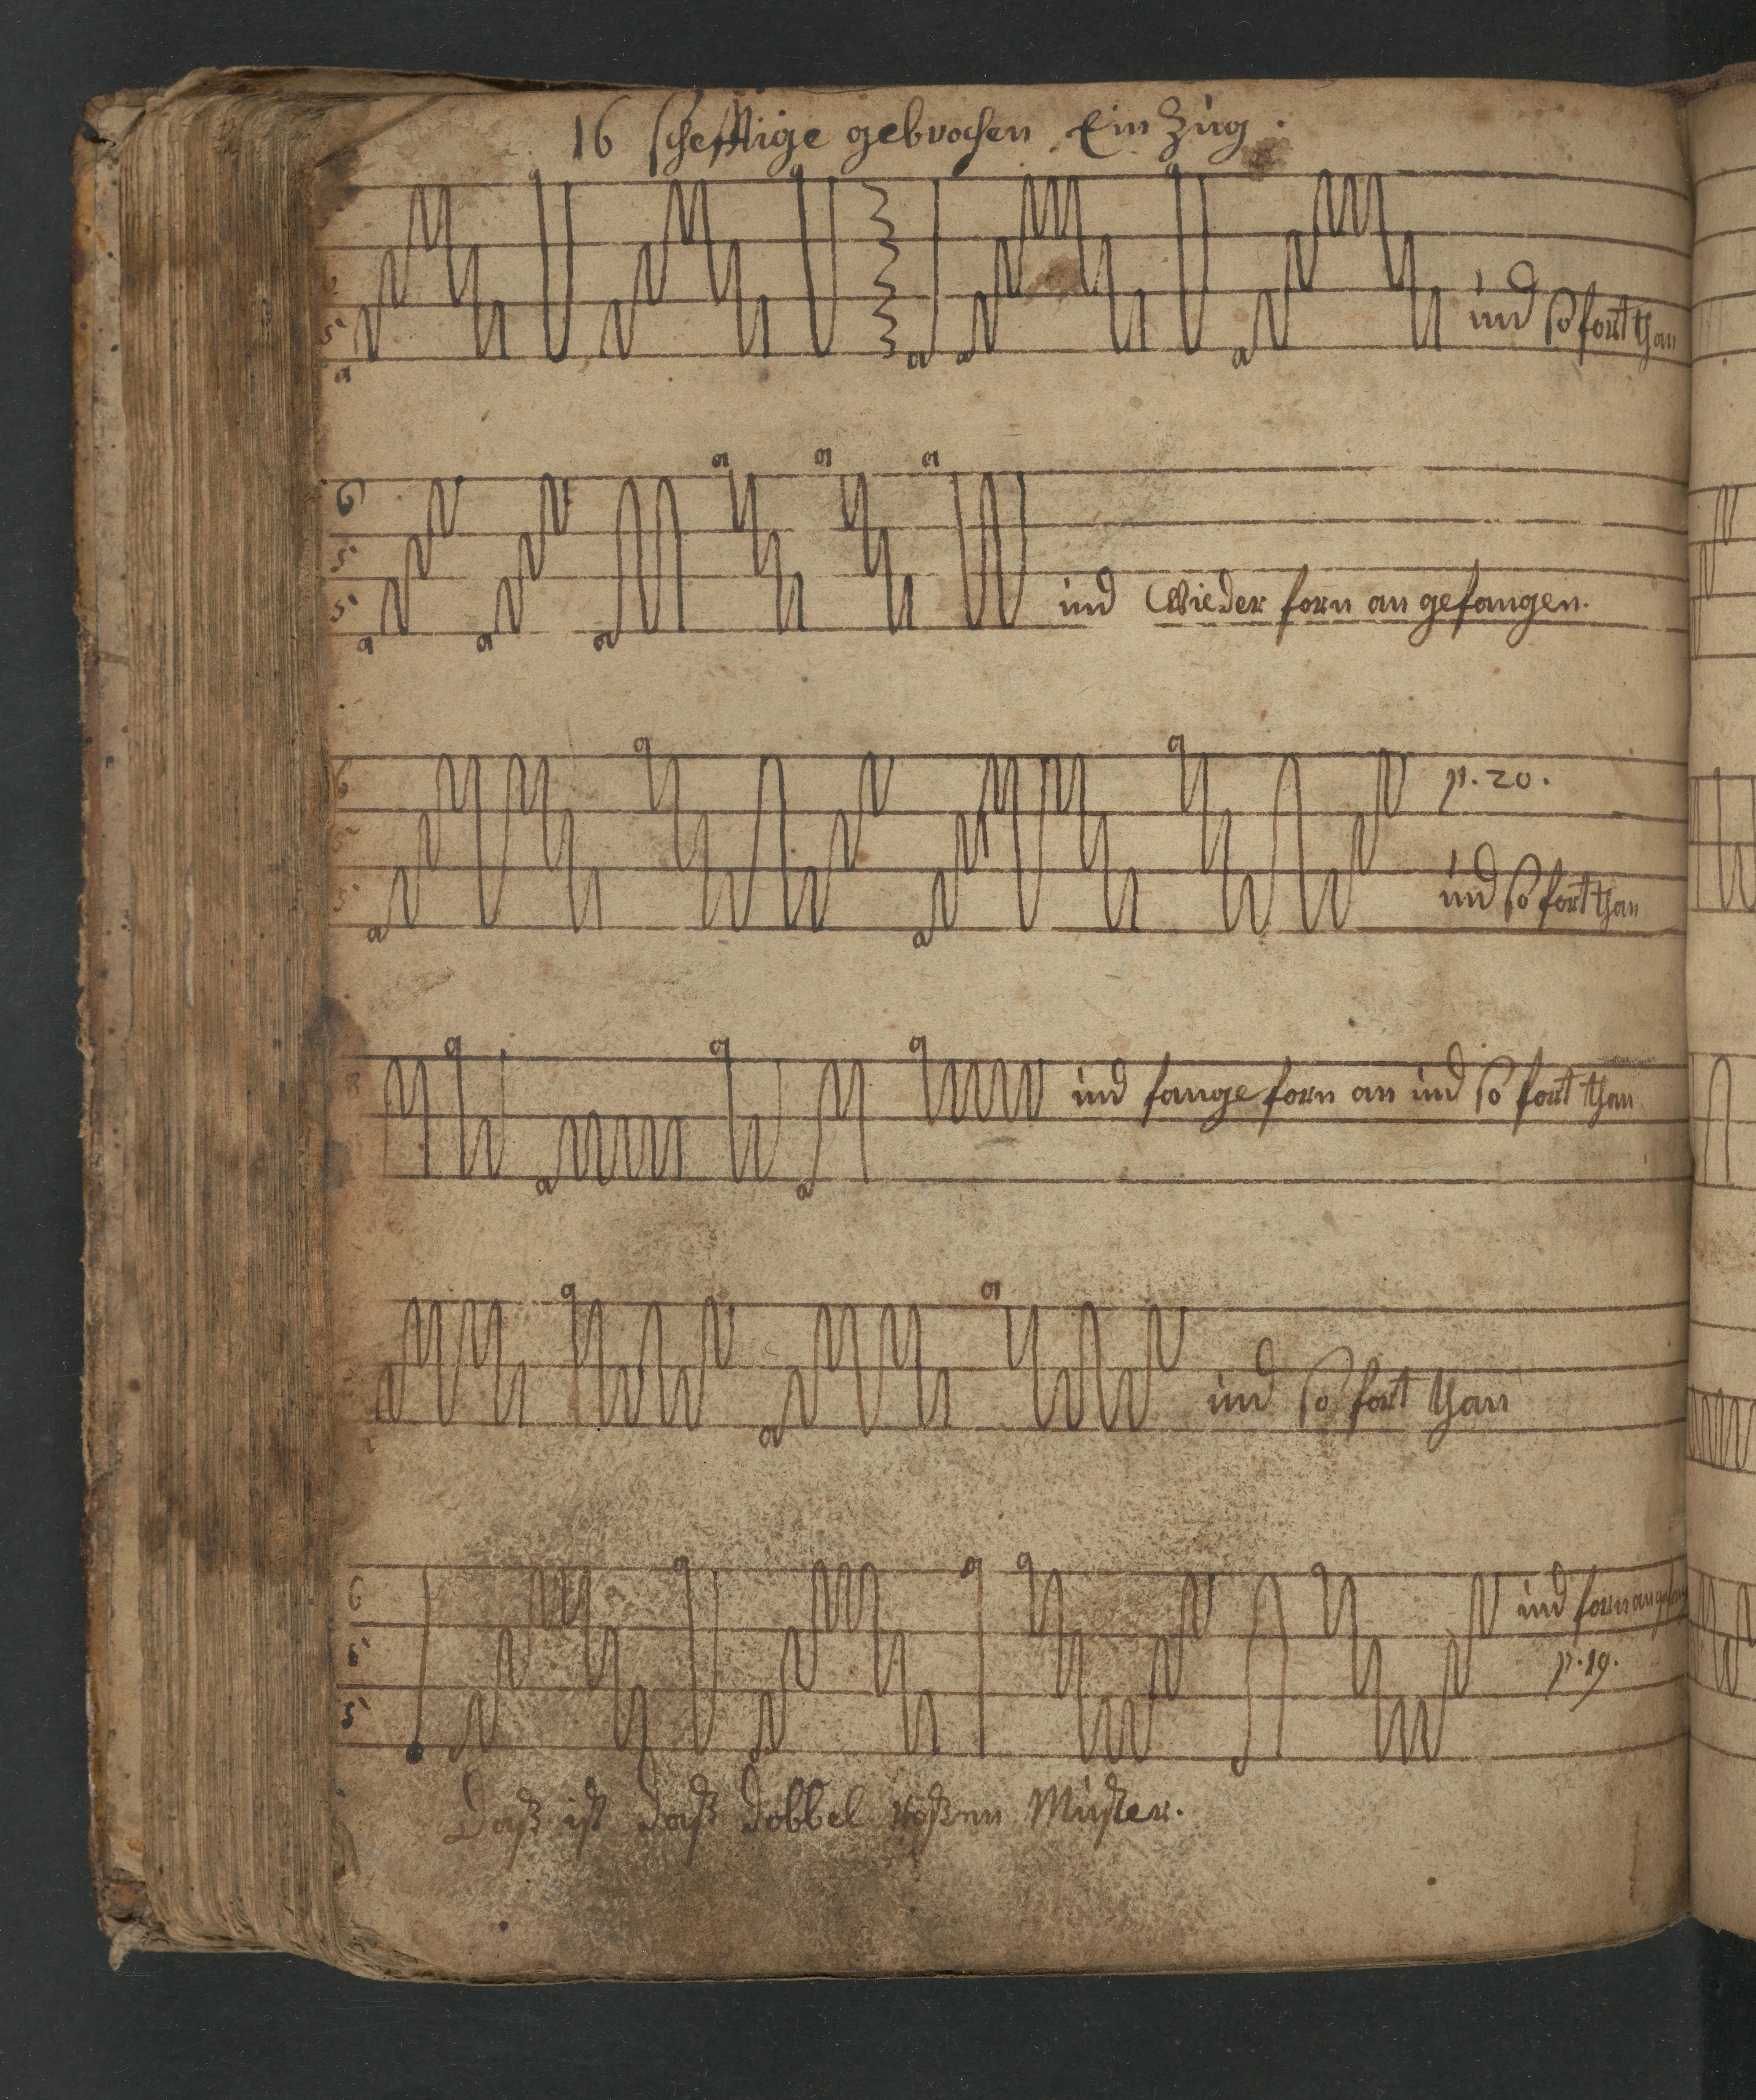 16 schefftige gebrochen Ein Zug.
5
und so fort than
6
5
5
und Wieder forn an gefangen.
6
p. 20.
5
5
und so fort than
und fange forn an und so fort than
und so fort than
6
und forn an gefang
5
p. 19.
5
Daß ist daß dobbel roßen Muster.